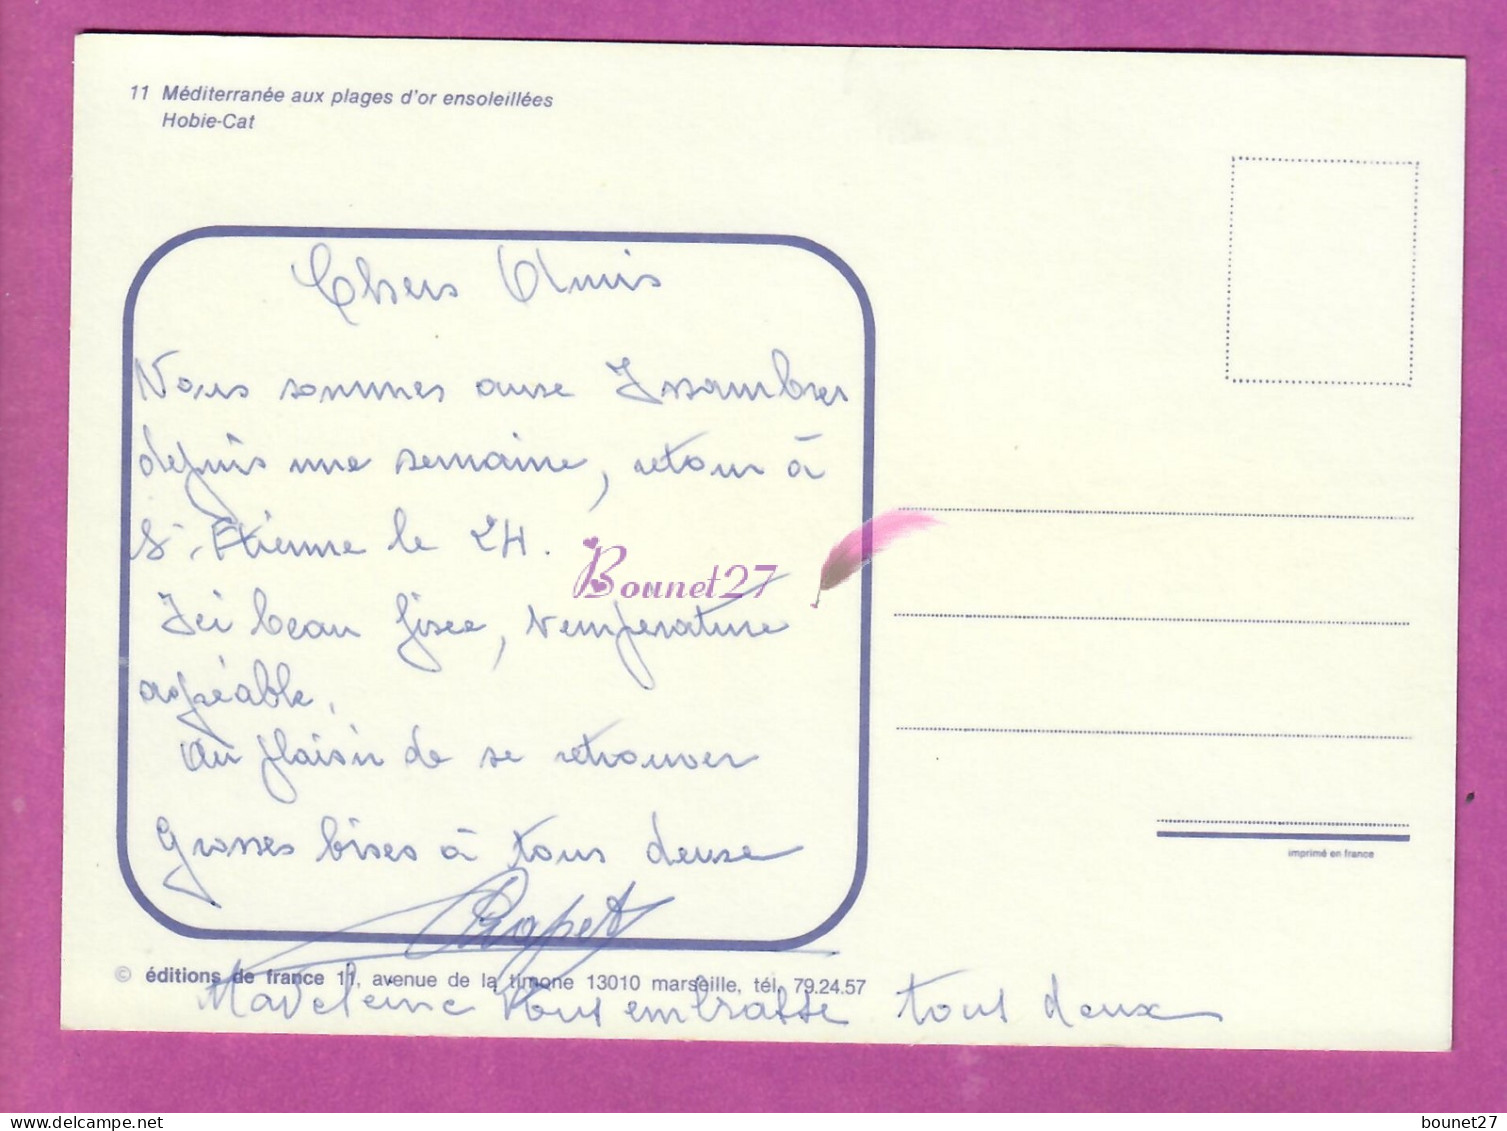 11 Méditerranée aux plages d'or ensoleillées
Hobie-Cat
Chers Amis
Nous sommes aux Issambres
depuis une semaine, retour à
St. Etienne le 24.
Ici beau fixe, température
agréable.
Au plaisir de se retrouver
Grosses bises à tous deux
Chapet
Bounet27
imprimé en france
© éditions de france 11, avenue de la timone 13010 marseille, tél. 79.24.57
Madeleine vous embrasse tous deux
delcampe.net
bounet27